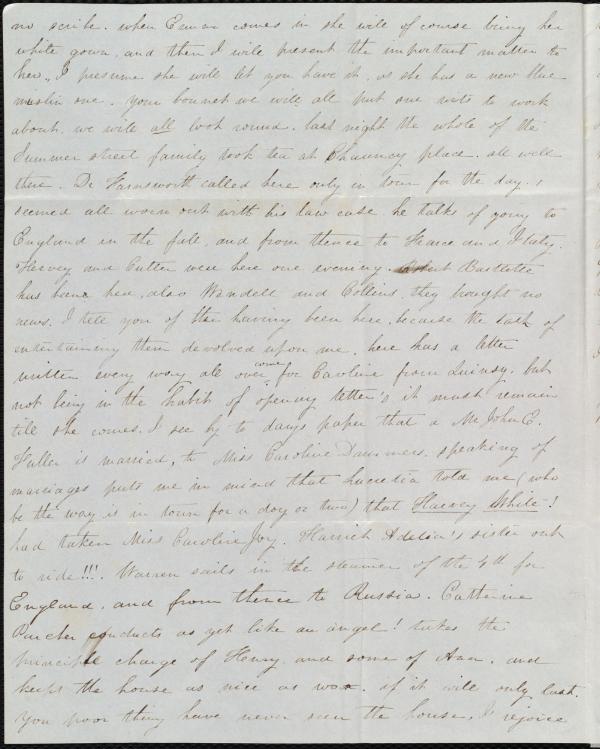 no scribe. when Emma comes in she will of course bring her
white gown, and then I will present the important matter to
her, I presume she will let you have it, as she has a new blue
muslin one. your bonnet we will all put our wits to work
about, we will all look round. last night the whole of the
Summer street family took tea at Chauncy place. all well
there. Dr Farnsworth called here only in town for the day,
seemed all worn out with his law case. he talks of going to
England in the fall, and from thence to and Italy.
Harvey and Cutter were here one evening. Bartlette
has been here, also Wendell and Collins. they brought no
news. I tell you of their having been here, because the task of
entertaining them devolved upon me. here has a letter
written every way all over come for Caroline from Quinsy, but
not being in the habit of opening letter's it must remain
till she comes. I see by to days paper that a Mr John C.
Fuller is married, to Miss Caroline Danvers. speaking of
marriages puts me in mind that Lucretia told me (who
be the way is in town for a day or two) that Harvey White!
had taken Miss Caroline Joy. Harriet Adelia's sister out
to ride!!!. Warren sails in the steamer of the 4th for
England, and from thence to Russia. Catherine
conducts as yet like an angel! takes the
principle charge of Henry, and some of Ann, and
keeps the house as nice as wax. if it will only last.
You poor thing have never seen the house, I rejoice